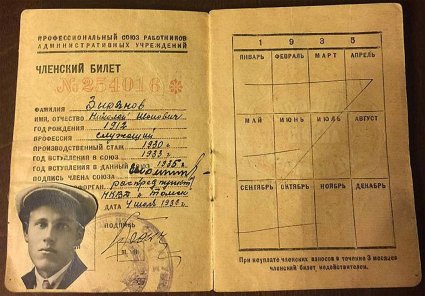 ПРОФЕССИОНАЛЬНЫЙ СОЮЗ РАБОТНИКОВ
АДМИНИСТРАТИВНЫХ УЧРЕЖДЕНИЙ
ЧЛЕНСКИЙ БИЛЕТ
№254016 *
ФАМИЛИЯ Зырянов
ИМЯ, ОТЧЕСТВО Николай Иванович
ГОД РОЖДЕНИЯ 1912
ПРОФЕССИЯ служащий
ПРОИЗВОДСТВЕННЫЙ СТАЖ 1930 г.
ГОД ВСТУПЛЕНИЯ В СОЮЗ 1933 г.
ГОД ВСТУПЛЕНИЯ В ДАННЫЙ СОЮЗ 1935 г.
ПОДПИСЬ ЧЛЕНА СОЮЗА
распред пункт
НКВД г. Томск
ДАТА 4 июля 193
ПОДПИСЬ
1 9 3 5
ЯНВАРЬ ФЕВРАЛЬ МАРТ АПРЕЛЬ
МАЙ ИЮНЬ ИЮЛЬ АВГУСТ
СЕНТЯБРЬ ОКТЯБРЬ НОЯБРЬ ДЕКАБРЬ
При неуплате членских взносов в течение 3 месяцев
членский билет недействителен.